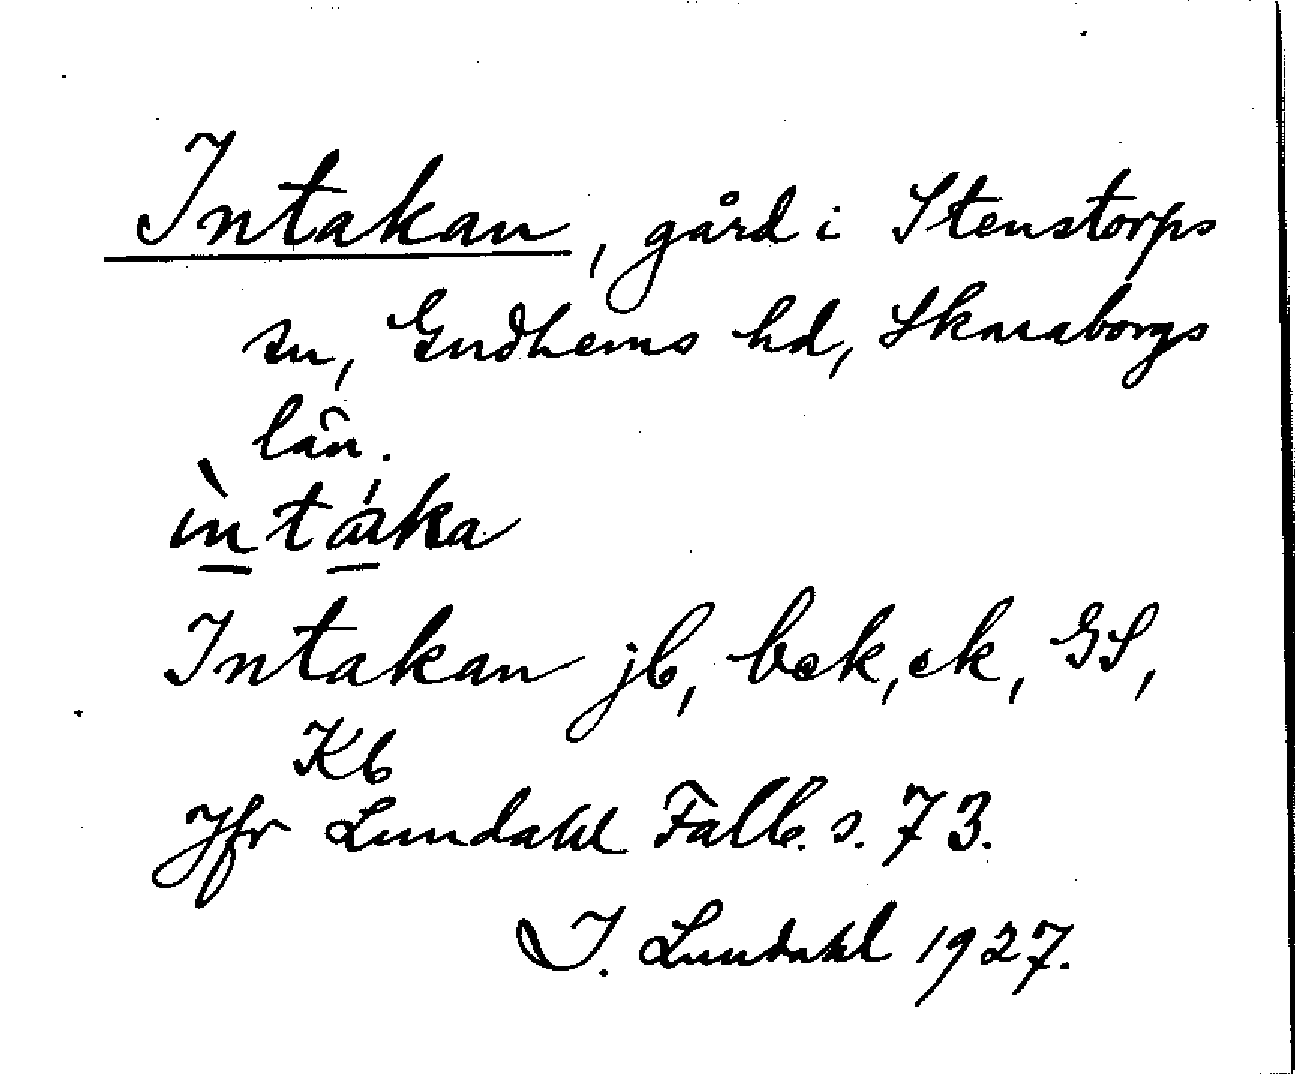 Intakan, gård i Stenstorps
sn, Gudhems hd, Skaraborgs
län.
ìntáka
Intakan jb, bek, ek, GS,
Kb
Jfr Lundahl Falb. s. 73.
I. Lundahl 1927.